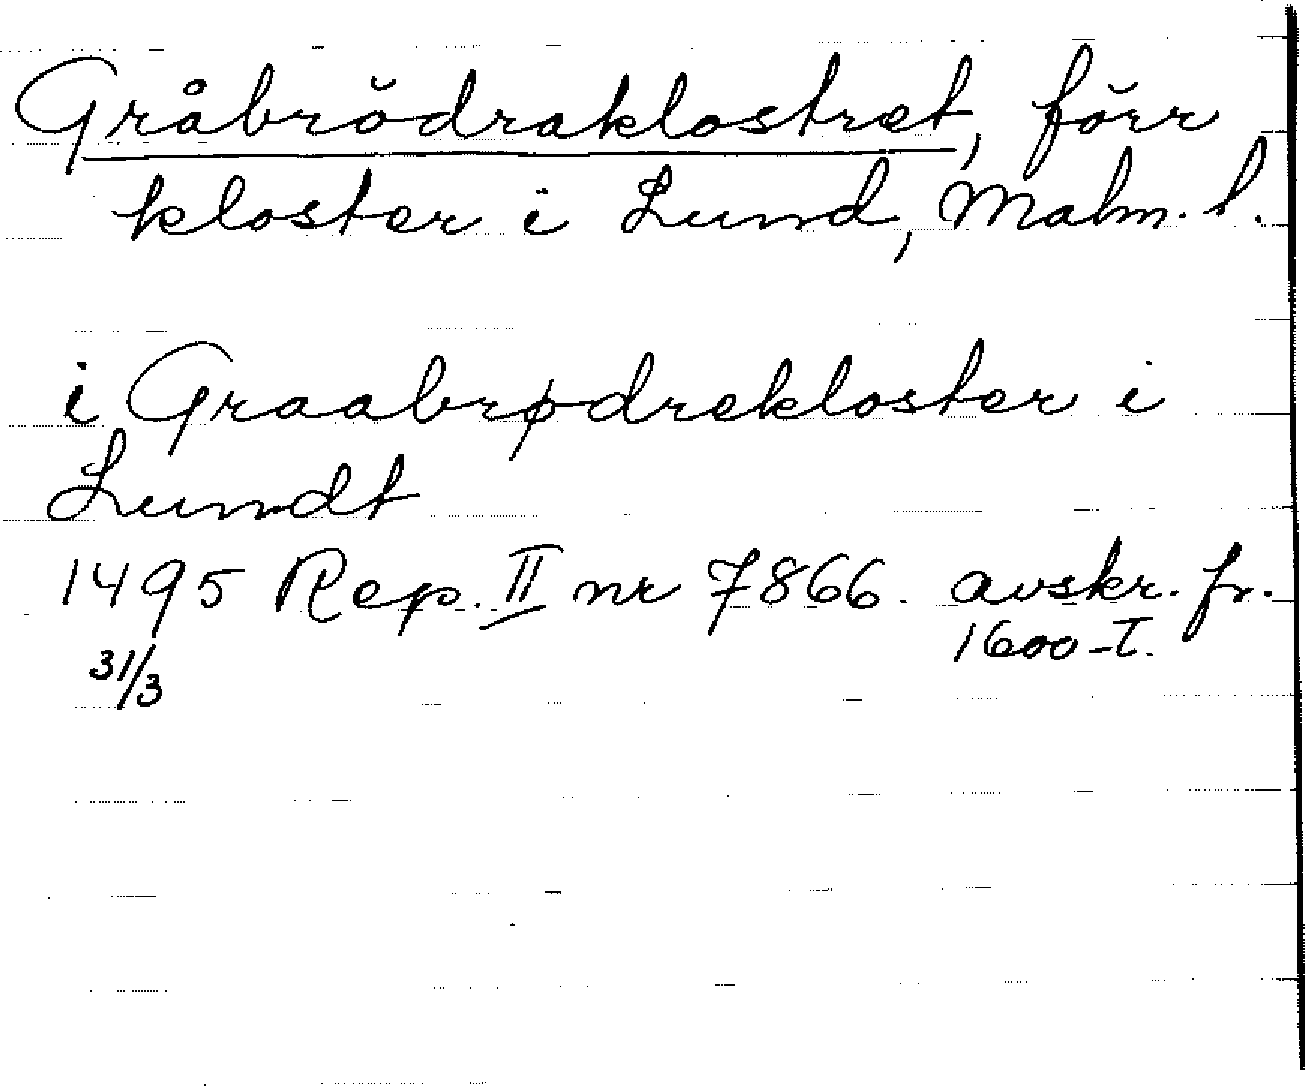 Gråbrödraklostret, förr
kloster i Lund, Malm. l.
i Graabrødrekloster i
Lundt
1495 Rep. II nr 7866. avskr. fr.
31/3 1600-t.